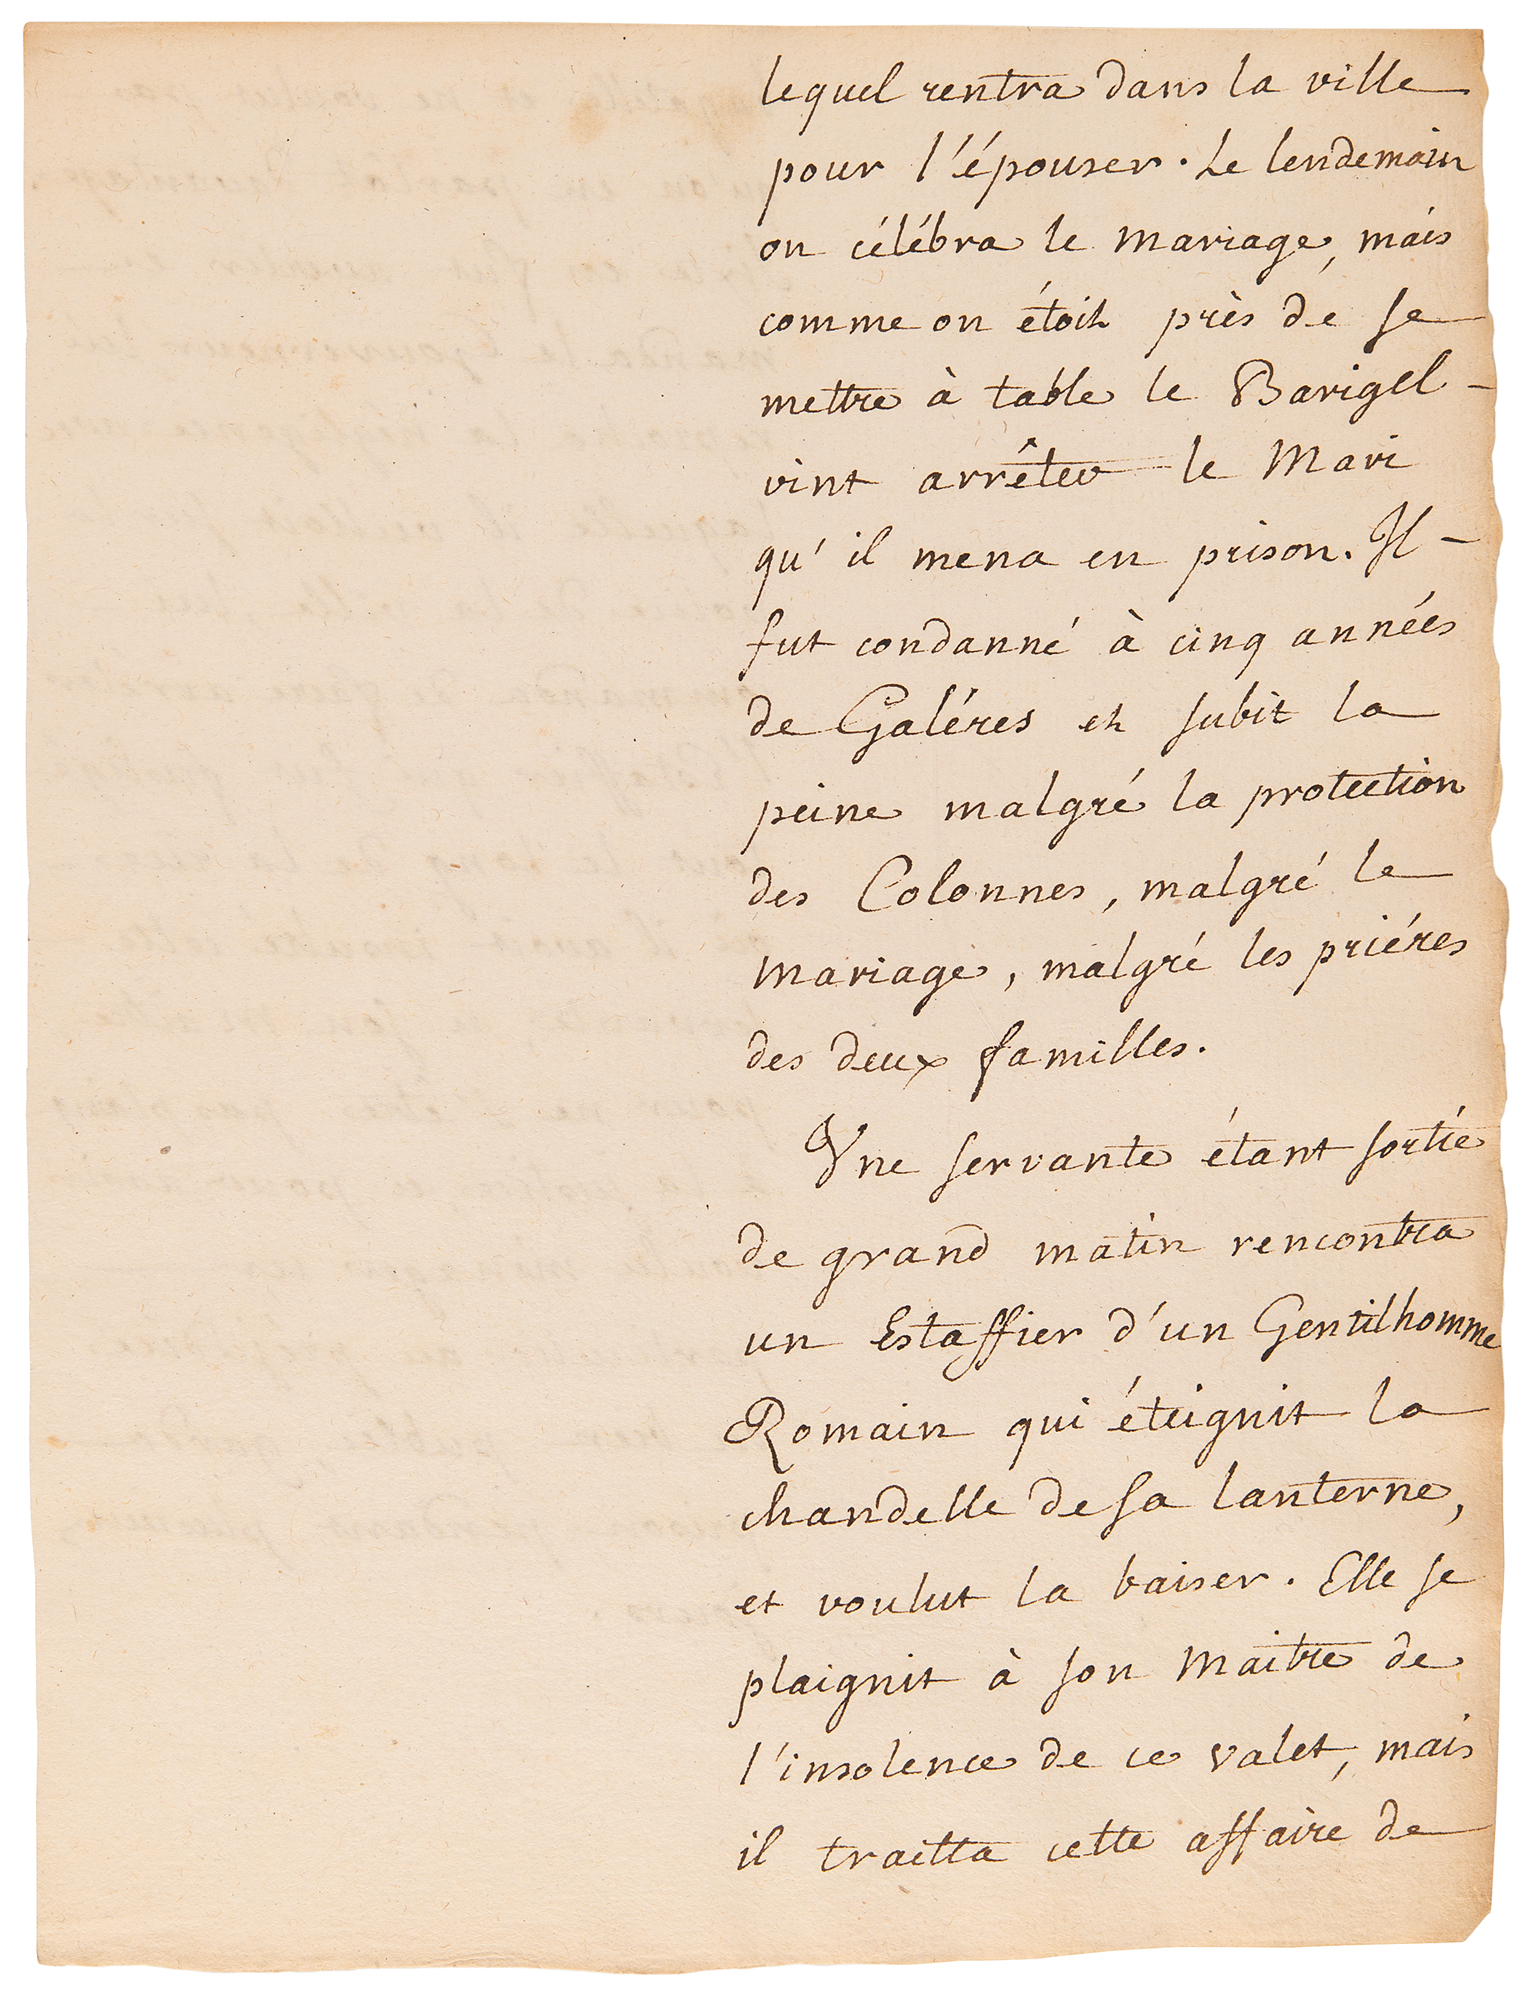 lequel rentra dans la ville
pour l'épouser. Le lendemain
on célébra le mariage, mais
comme on étoit près de se
mettre à table le Barigel -
vint arrêter le Mari
qu'il mena en prison. Il -
fut condanné à cinq années
de Galéres et subit la
peine malgré la protection
des Colonnes, malgré le
mariage, malgré les priéres
des deux familles.
Vne servante étant sortie
de grand matin rencontra
un Estaffier d'un Gentilhomme
Romain qui éteignit la
chandelle de sa lanterne,
et voulut la baiser. Elle se
plaignit à son Maitre de
l'insolence de ce valet, mais
il traitta cette affaire de